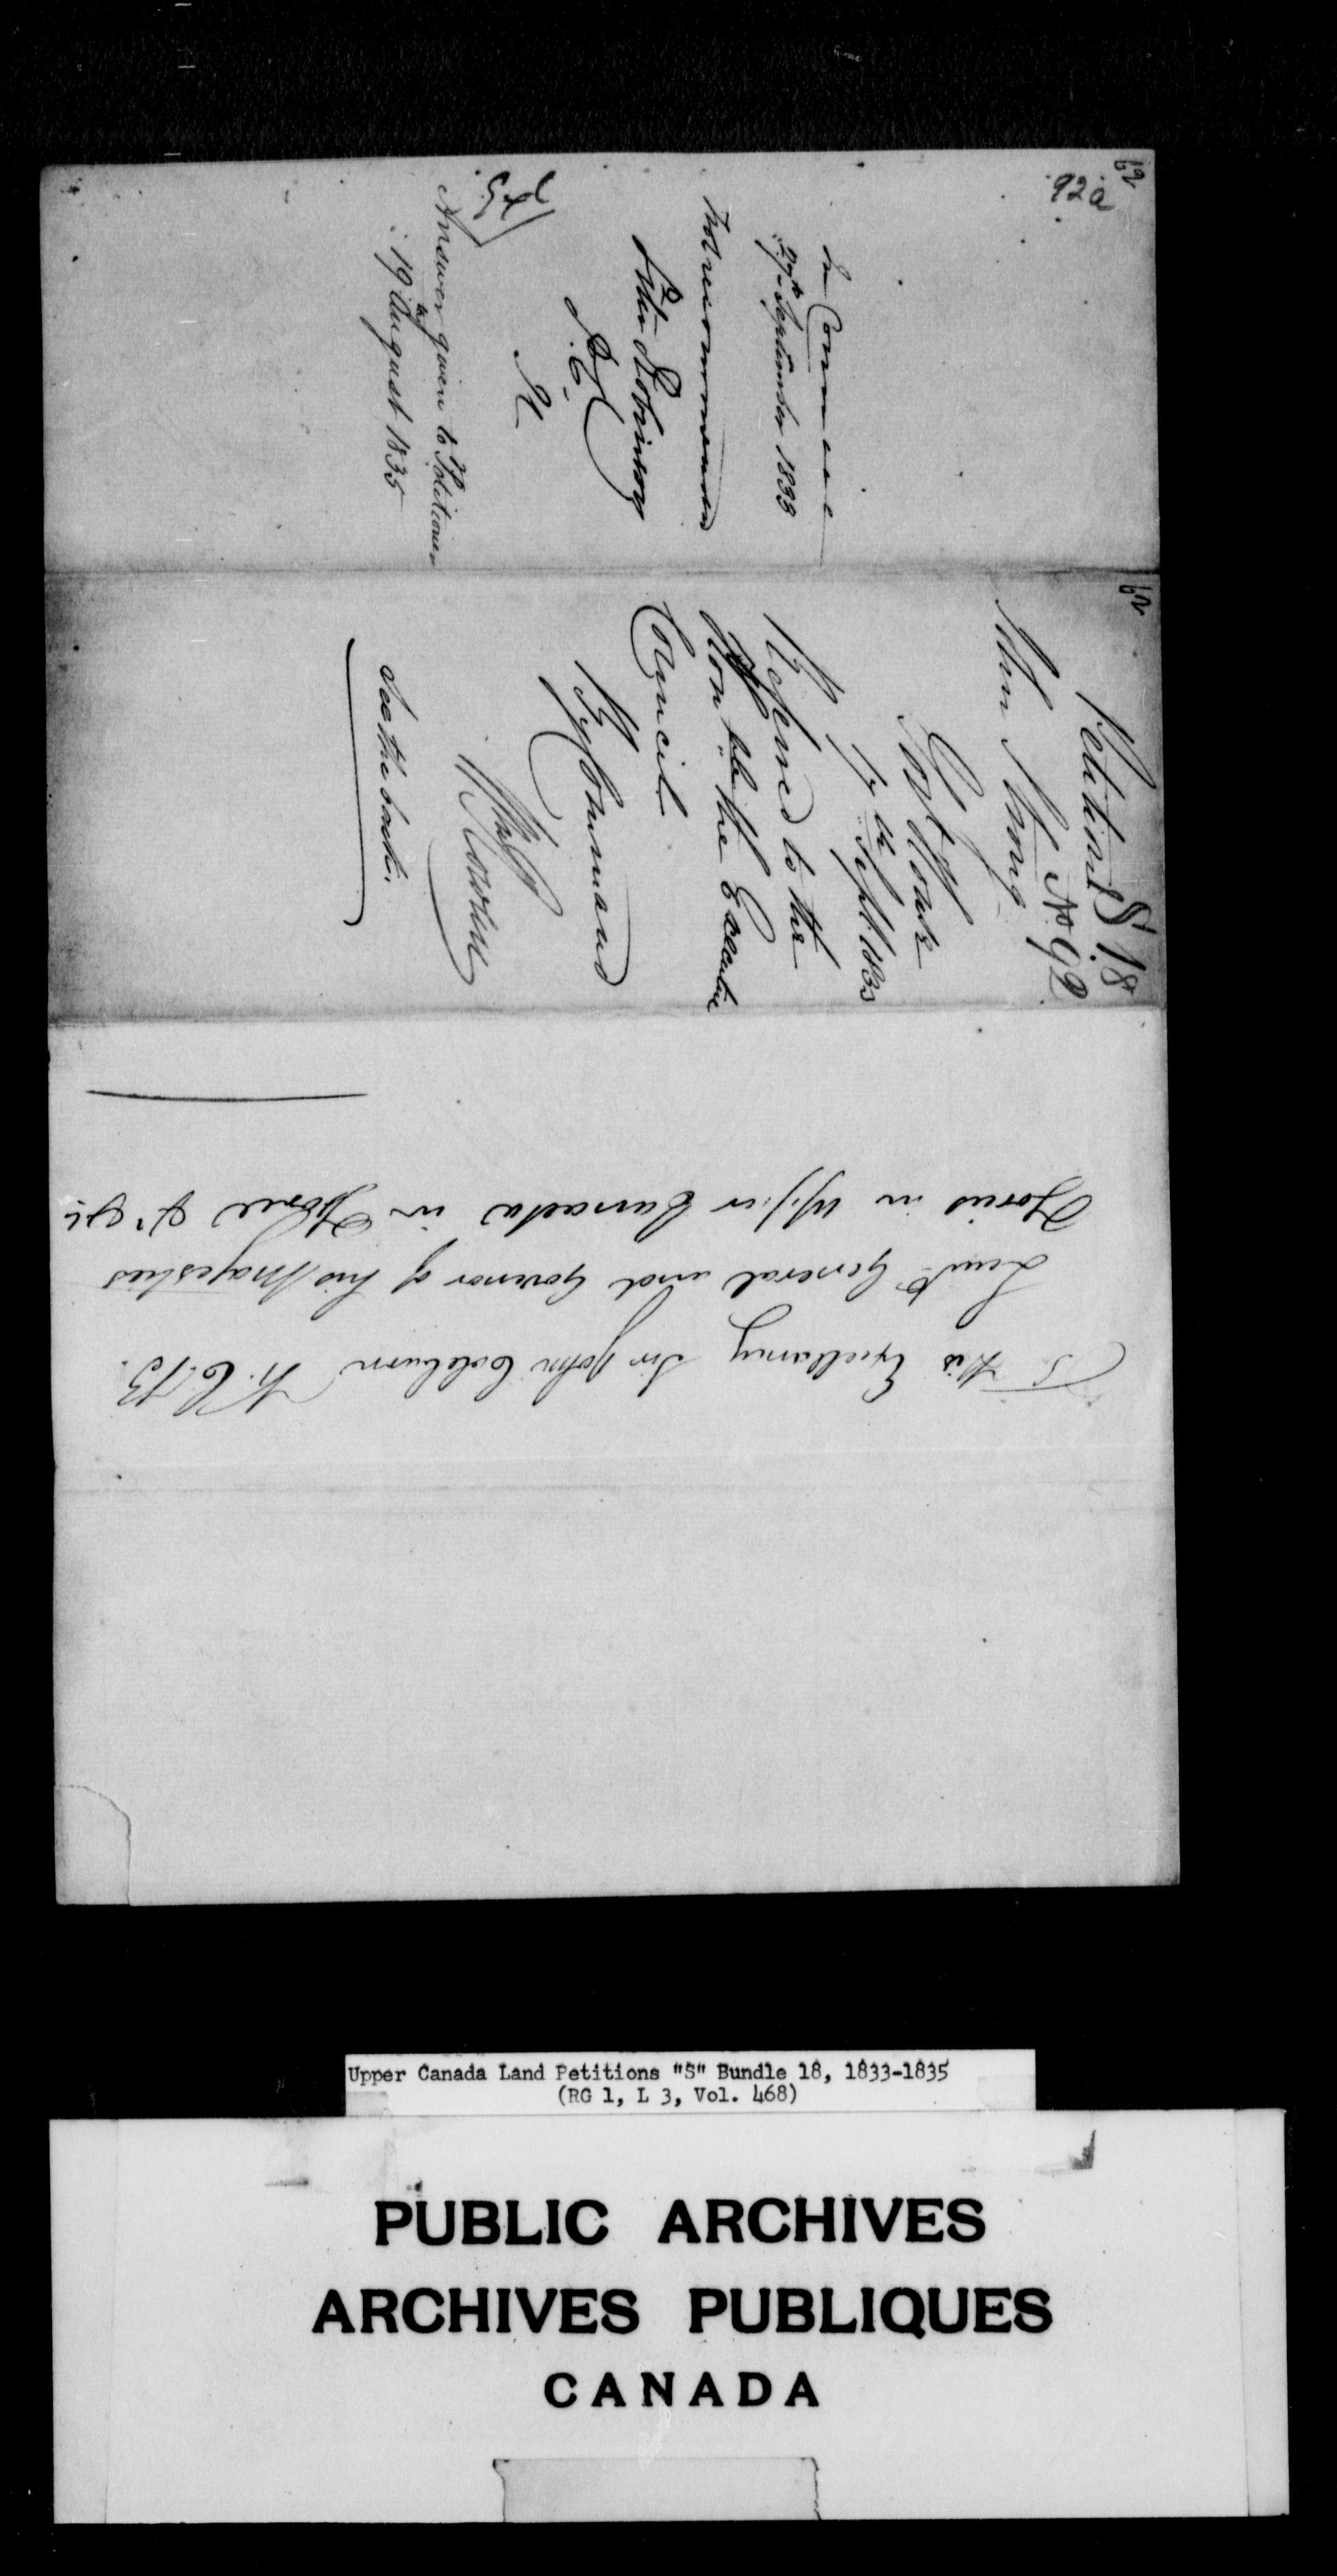 92a
In Council
27th September 1833
Not recommended
Peter Robinson
P.C.
Answer given to Petitioner
19th August 1835
Petition S 18
No 92
John Strong
Govt House
Sept 1833
Referred to the
Honble the Executive
Council
By Command
Wm Rowan
See the back.
To His Excellency Sir John Coleburn K.C.B.
Leiut General and Governor of his Majesties
Forces in Upper Canada in
Upper Canada Land Petitions "S" Bundle 18, 1833-1835
(RG 1, L 3, Vol. 468)
PUBLIC ARCHIVES
ARCHIVES PUBLIQUES
CANADA